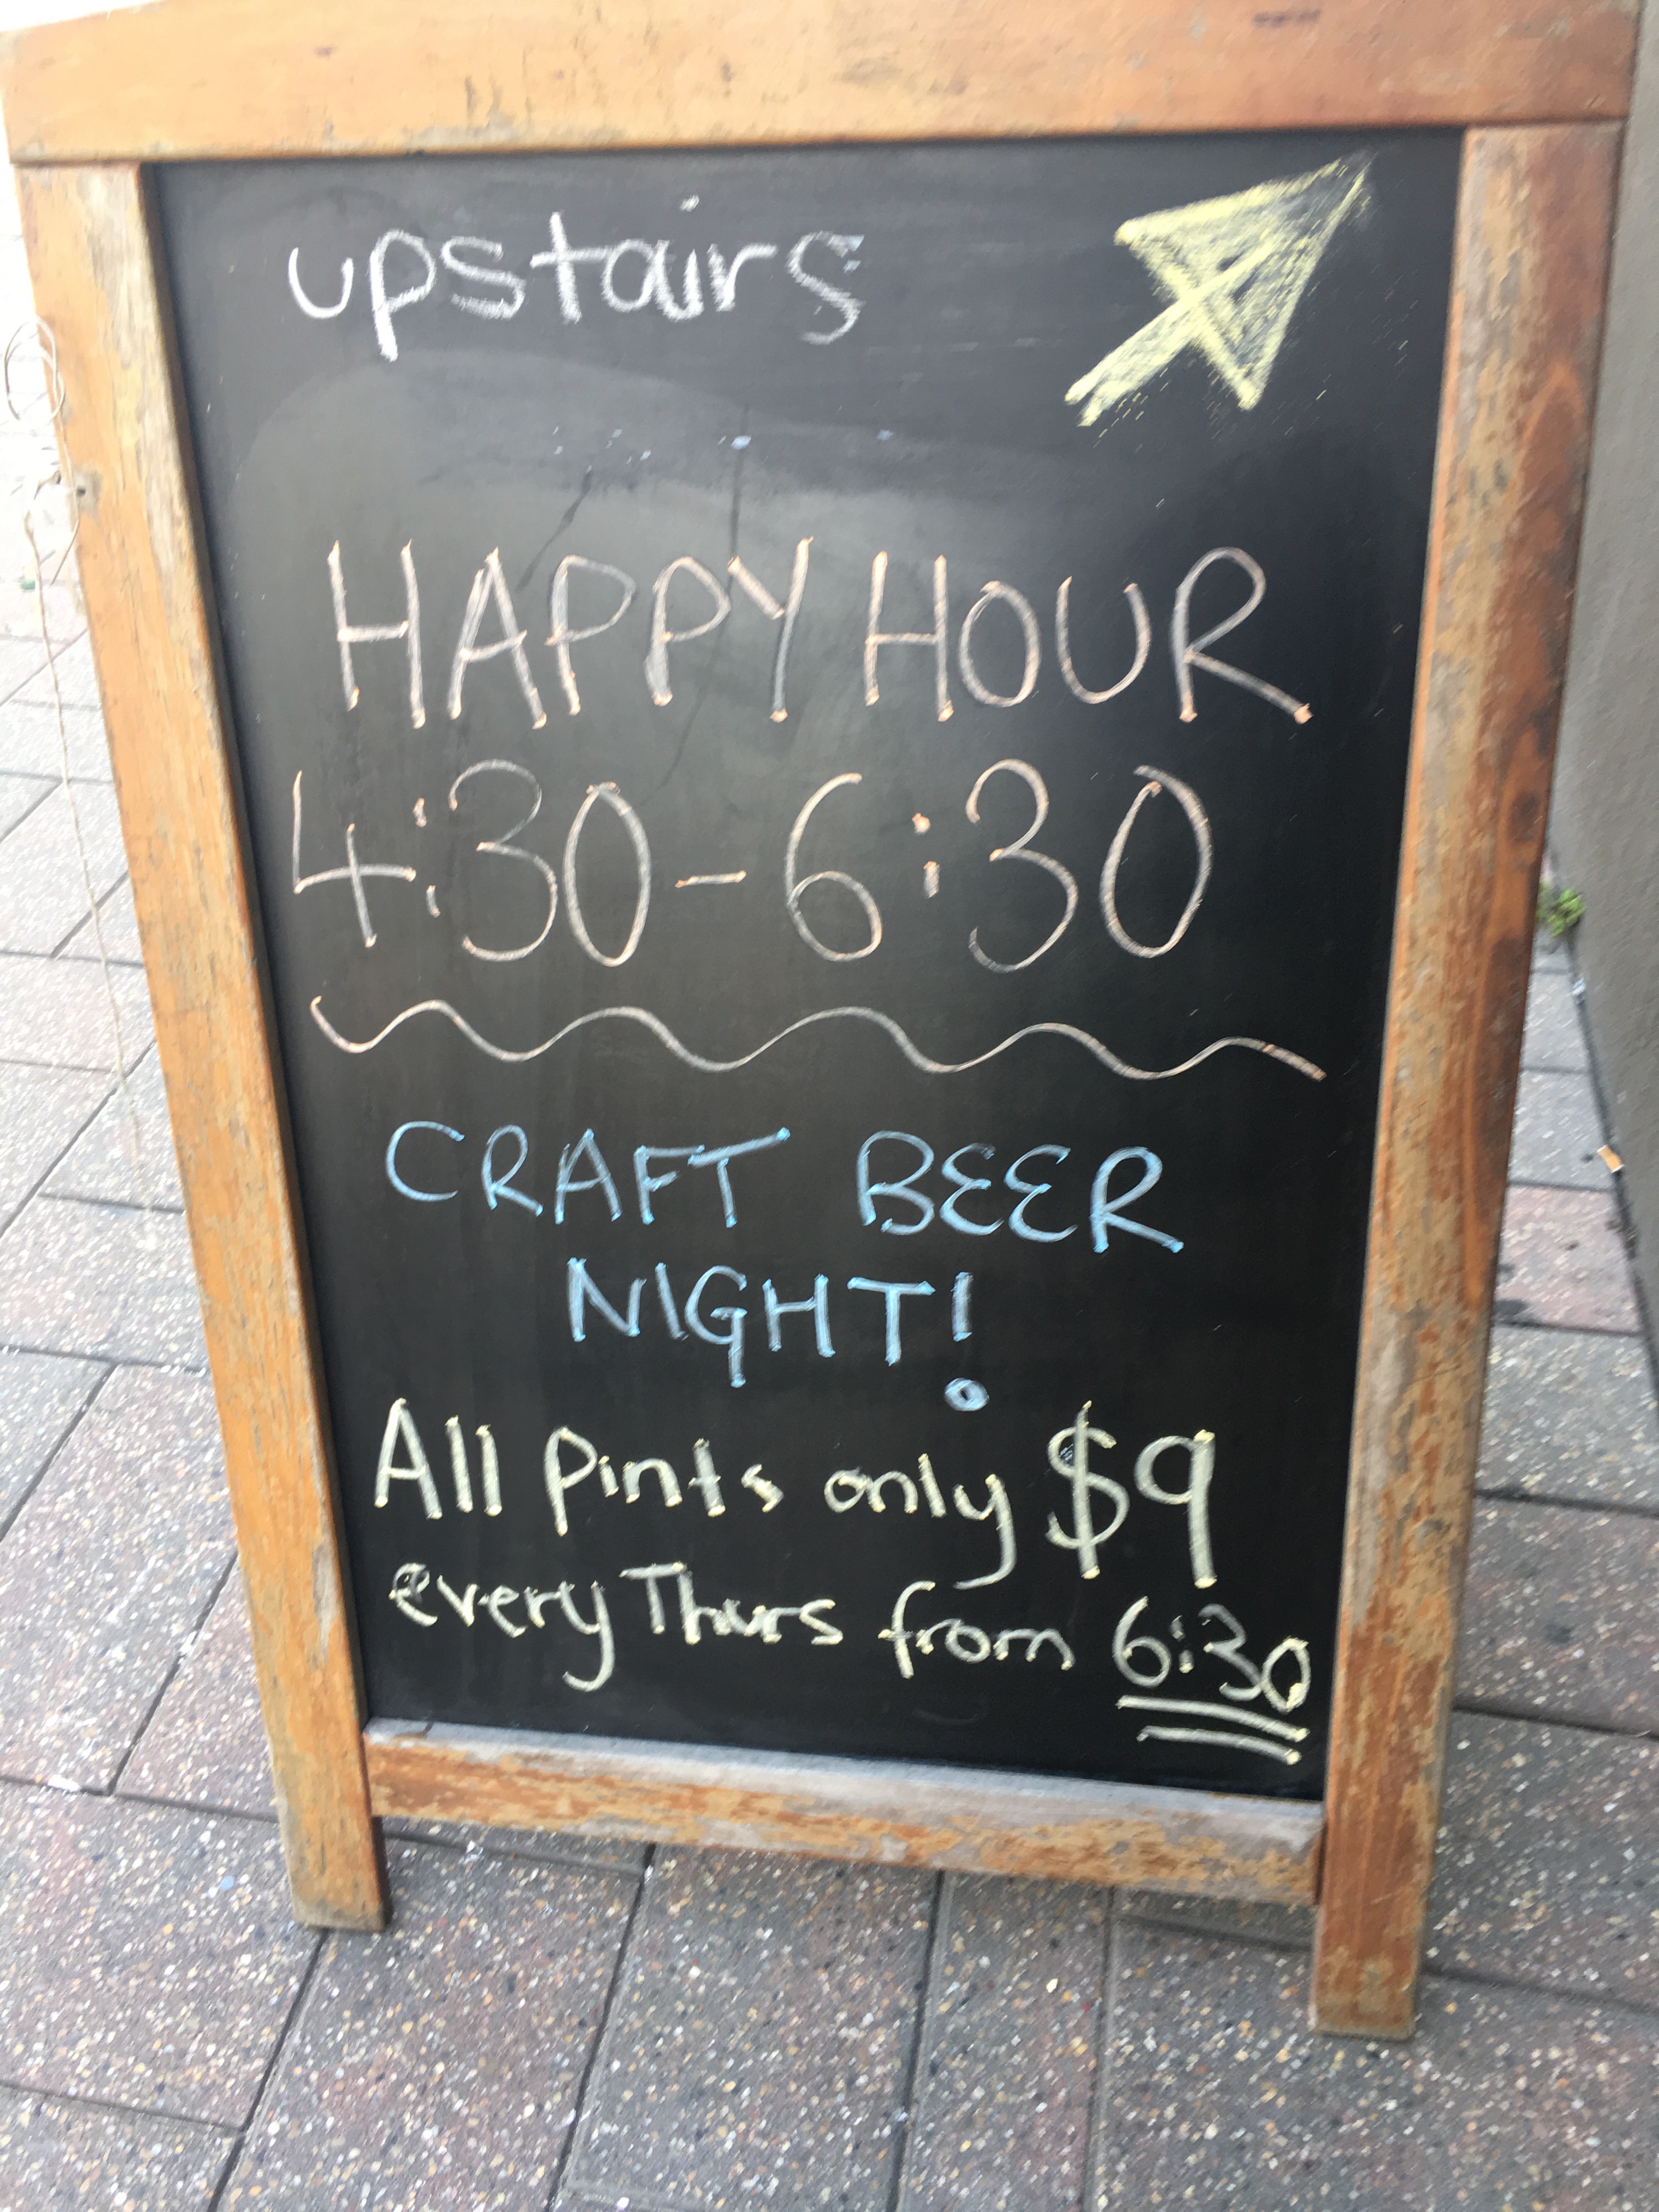 upstairs
HAPPY HOUR
4:30-6:30
CRAFT BEER
NIGHT!
All pints only $9
every Thurs from 6:30